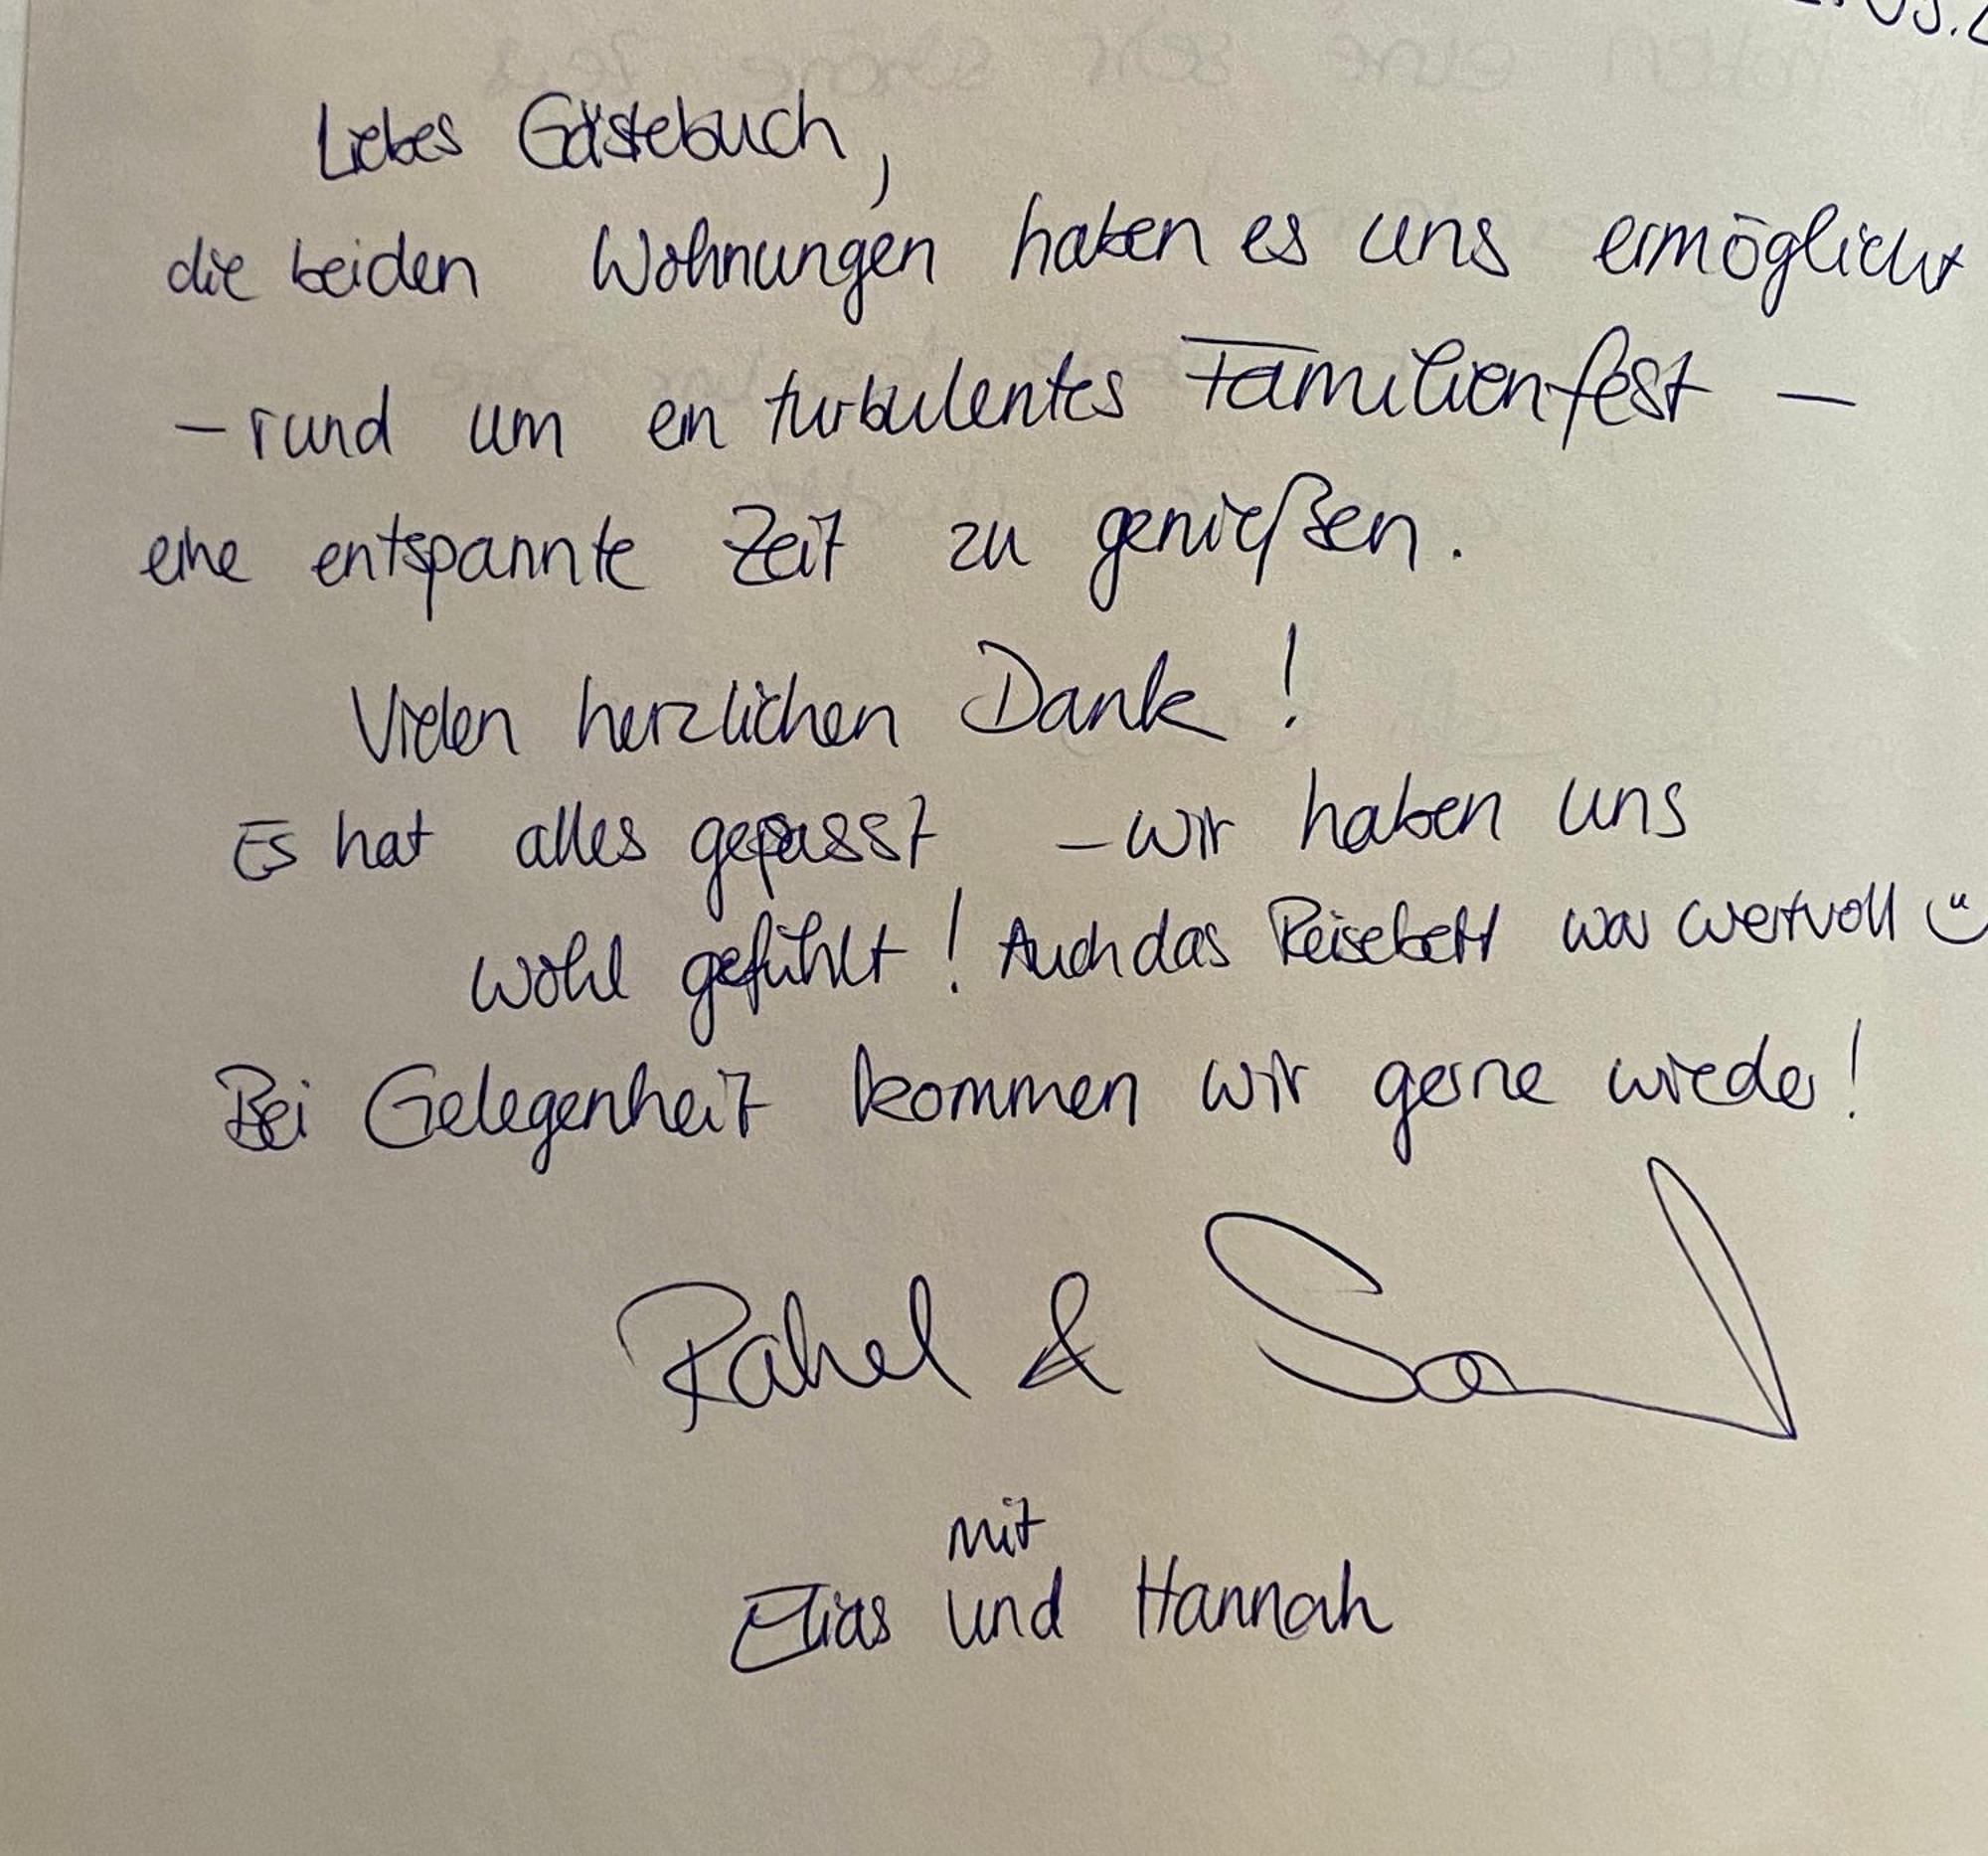 Liebes Gästebuch,
die beiden Wohnungen haben es uns ermöglicht
– rund um ein turbulentes Familienfest –
eine entspannte Zeit zu genießen.
Vielen herzlichen Dank!
Es hat alles gepasst – wir haben uns
wohl gefühlt! Auch das Reisebett war wertvoll ☺
Bei Gelegenheit kommen wir gerne wieder!
Rahel &
mit
Elias und Hannah